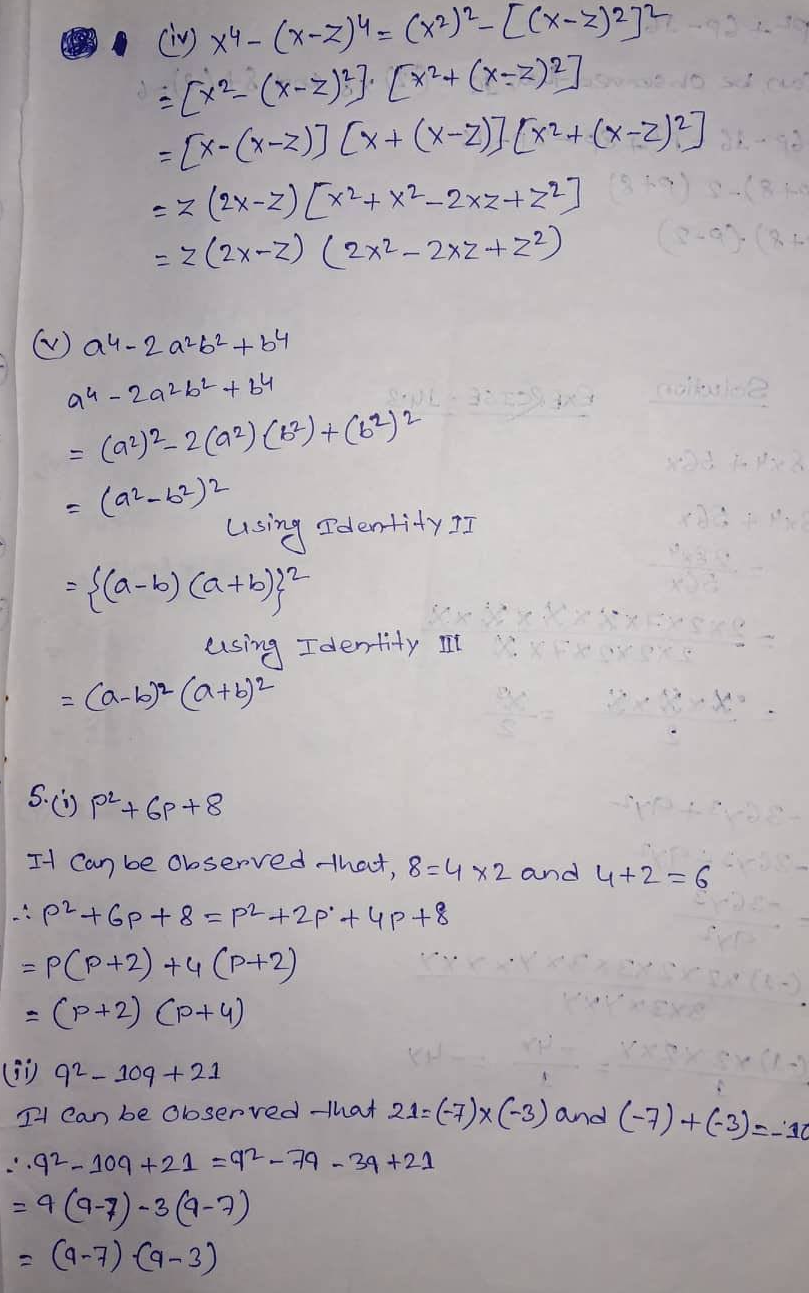 (iv) x⁴ - (x-z)⁴ = (x²)² - [(x-z)²]²
= [x² - (x-z)²]. [x² + (x-z)²]
= [x-(x-z)] [x + (x-z)] [x² + (x-z)²]
= z (2x-z) [x² + x² - 2xz + z²]
= z (2x-z) (2x² - 2xz + z²)
(v) a⁴ - 2a²b² + b⁴
a⁴ - 2a²b² + b⁴
= (a²)² - 2(a²) (b²) + (b²)²
= (a² - b²)²
Using Identity II
= {(a-b) (a+b)}²
Using Identity III
= (a-b)² (a+b)²
5.(i) p² + 6p + 8
It can be observed that, 8 = 4 x 2 and 4 + 2 = 6
∴ p² + 6p + 8 = p² + 2p + 4p + 8
= p(p+2) + 4 (p+2)
= (p+2) (p+4)
(ii) q² - 10q + 21
It can be observed that 21 = (-7) x (-3) and (-7) + (-3) = -10
∴ q² - 10q + 21 = q² - 7q - 3q + 21
= q (q-7) - 3 (q-7)
= (q-7) (q-3)